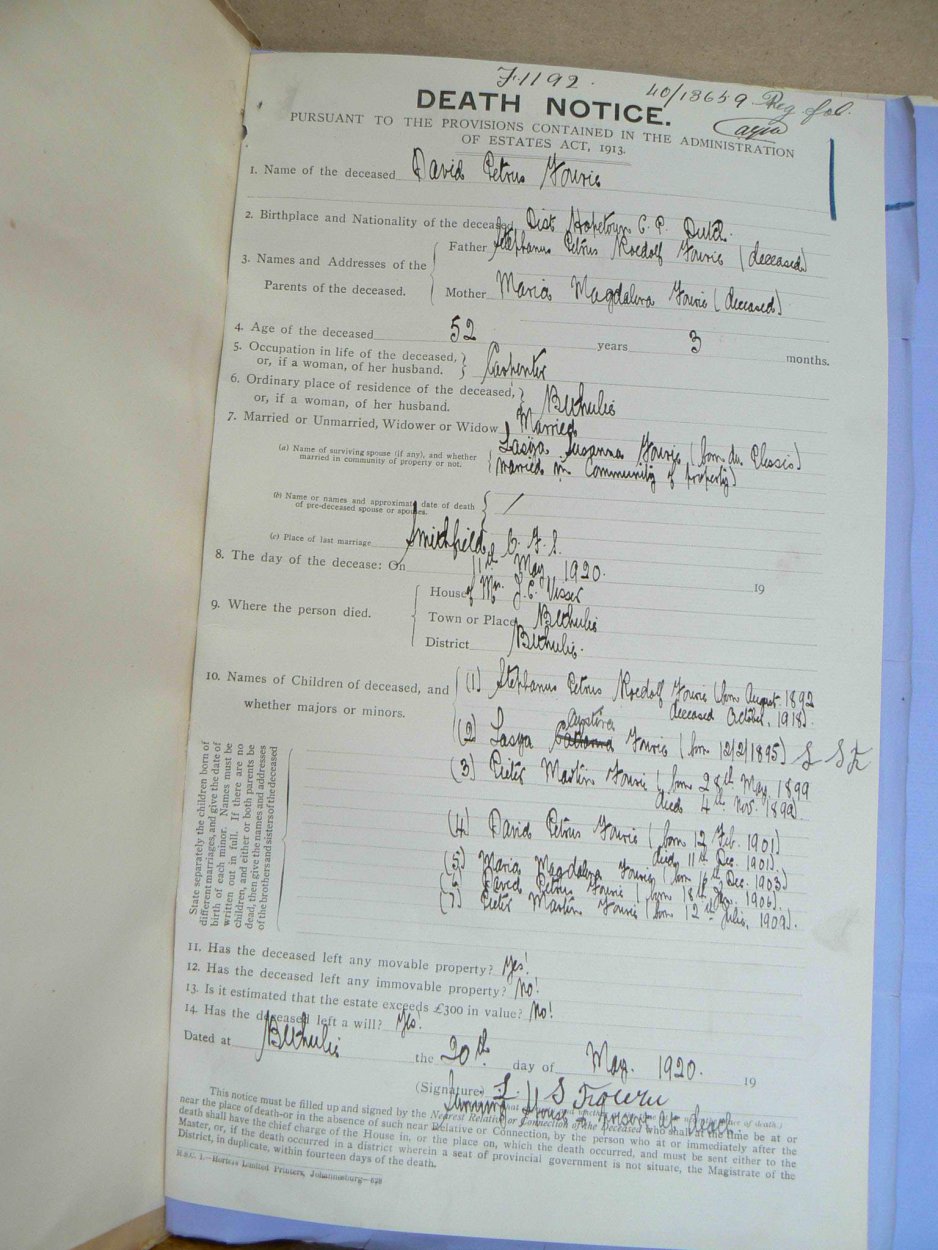 F.1192. 40/18659 Reg. fol.
DEATH NOTICE.
PURSUANT TO THE PROVISIONS CONTAINED IN THE ADMINISTRATION
OF ESTATES ACT, 1913.
1. Name of the deceased David Petrus Fourie
2. Birthplace and Nationality of the deceased Dist Hopetown C. P. Dutch.
3. Names and Addresses of the Parents of the deceased.
Father Stephanus Petrus Roedolf Fourie (deceased)
Mother Maria Magdalena Fourie (deceased)
4. Age of the deceased 52 years 3 months.
5. Occupation in life of the deceased,
or, if a woman, of her husband. } Carpenter
6. Ordinary place of residence of the deceased,
or, if a woman, of her husband. } Bethulie
7. Married or Unmarried, Widower or Widow Married
(a) Name of surviving spouse (if any), and whether
married in community of property or not.
Lasya Susanna Fourie (born du Plessis)
married in Community of property)
(b) Name or names and approximate date of death
of pre-deceased spouse or spouses. /
(c) Place of last marriage Smithfield, O. F. S.
8. The day of the decease: On 11th May 1920. 19
9. Where the person died.
House of Mr. J. C. Visser
Town or Place Bethulie
District Bethulie.
10. Names of Children of deceased, and
whether majors or minors.
(1) Stephanus Petrus Roedolf Fourie (born August 1892
deceased October, 1918).
(2) Lasya Fourie (born 12/2/1895) L S F
(3) Pieter Martin Fourie (born 28th May 1899
died 4th Nov. 1899).
(4) David Petrus Fourie (born 12 Feb. 1901)
died 11th Dec. 1901).
(5) Maria Magdalena Fourie (born 16th Dec. 1903)
David Petrus Fourie (born 18th 1906).
(7) Pieter Martin Fourie (born 12th Julie, 1909).
State separately the children born of
different marriages, and give the date of
birth of each minor. Names must be
written out in full. If there are no
children, and either or both parents be
dead, then give the names and addresses
of the brothers and sisters of the deceased
11. Has the deceased left any movable property? Yes!
12. Has the deceased left any immovable property? No!
13. Is it estimated that the estate exceeds £300 in value? No!
14. Has the deceased left a will? Yes.
Dated at Bethulie the 20th day of May. 1920 19
(Signature) L S Fourie
Surviving Spouse present at death
This notice must be filled up and signed by the Nearest Relative or Connection of the deceased who shall at the time be at or
near the place of death—or in the absence of such near Relative or Connection, by the person who at or immediately after the
death shall have the chief charge of the House in, or the place on, which the death occurred, and must be sent either to the
Master, or, if the death occurred in a district wherein a seat of provincial government is not situate, the Magistrate of the
District, in duplicate, within fourteen days of the death.
H.&C. 1.—Hortors Limited Printers, Johannesburg—628